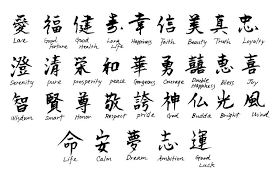 愛 福 健 寿 幸 信 美 真 忠
Love Good Fortune Good Health Long Life Happiness Faith Beauty Truth Loyalty
澄 清 栄 和 華 勇 囍 恵 喜
Serenity pure prosperity peace Gorgeous Courage Double Happiness Bless Joy
智 賢 尊 敬 誇 神 仏 光 風
Wisdom Smart Honor Respect pride God Budda Bright Wind
命 安 夢 志 運
Life Calm Dream Ambition Good Luck